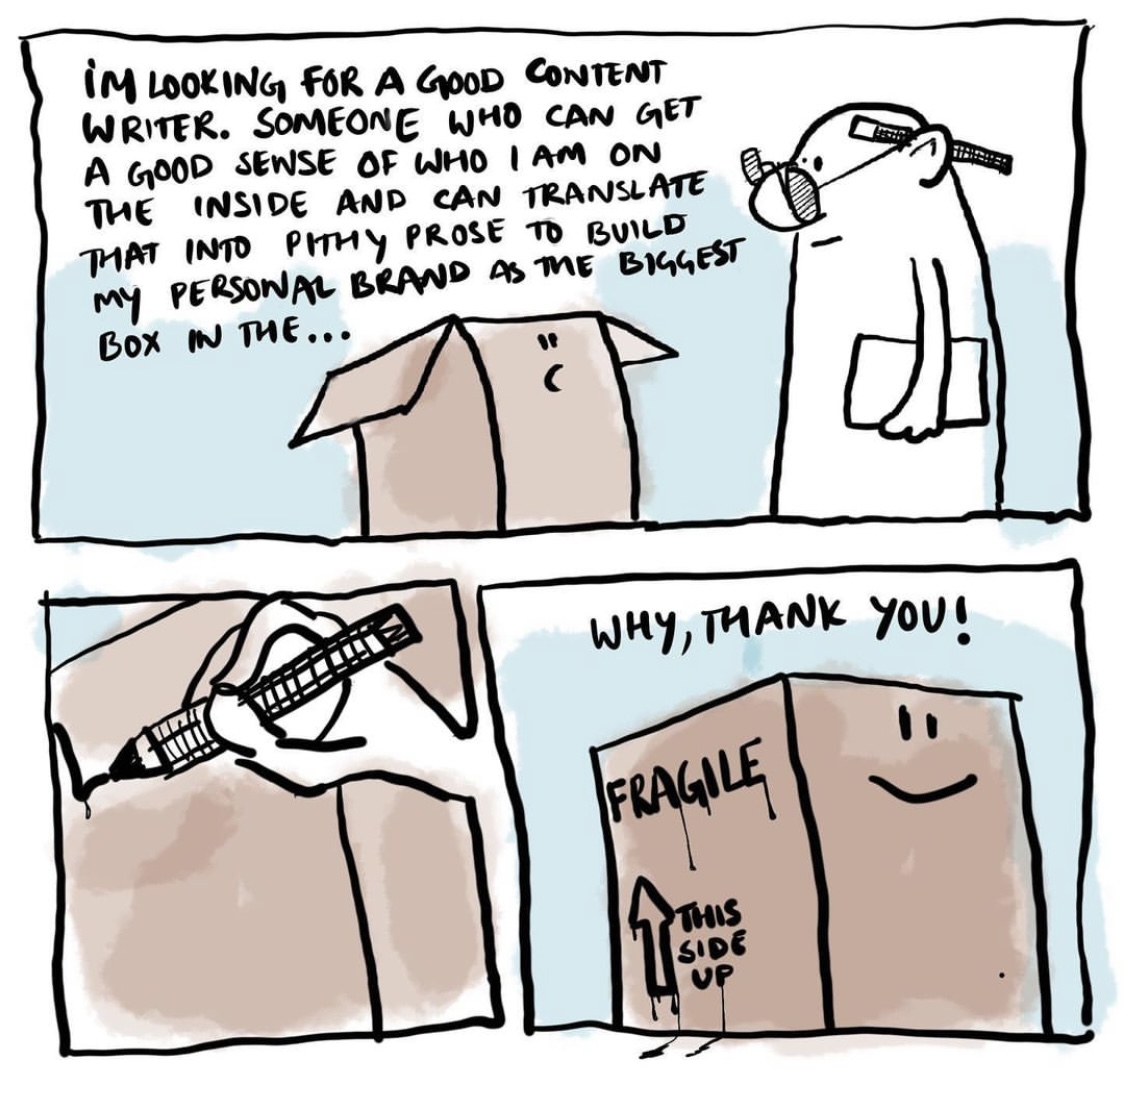 I'M LOOKING FOR A GOOD CONTENT
WRITER. SOMEONE WHO CAN GET
A GOOD SENSE OF WHO I AM ON
THE INSIDE AND CAN TRANSLATE
THAT INTO PITHY PROSE TO BUILD
MY PERSONAL BRAND AS THE BIGGEST
BOX IN THE...
WHY, THANK YOU!
FRAGILE
THIS
SIDE
UP